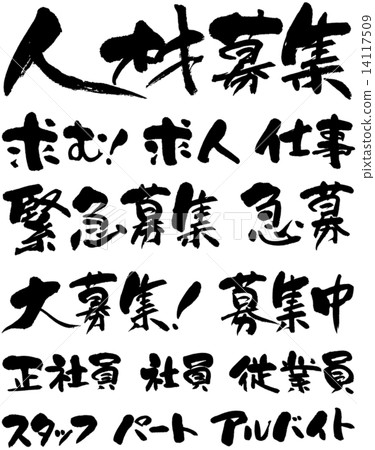 人材募集
求む! 求人 仕事
緊急募集 急募
大募集! 募集中
正社員 社員 従業員
スタッフ パート アルバイト
14117509